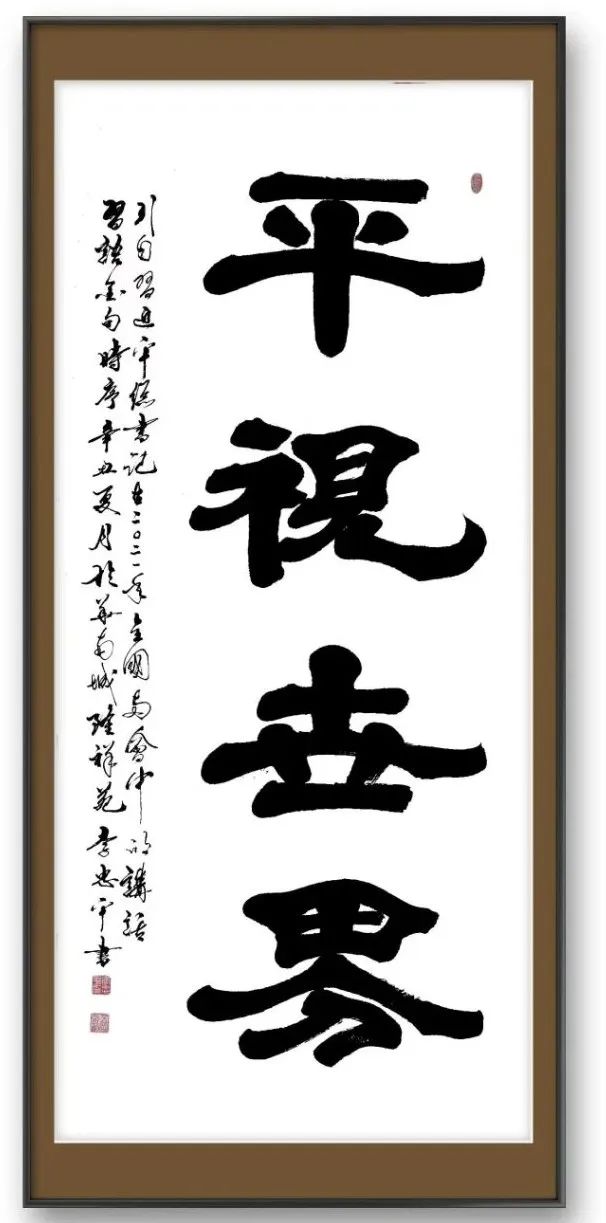 平視世界
引自習近平總書記在二〇二一年全國兩會中的講話
習語金句時序辛丑夏月於華南城隆祥苑李忠平書